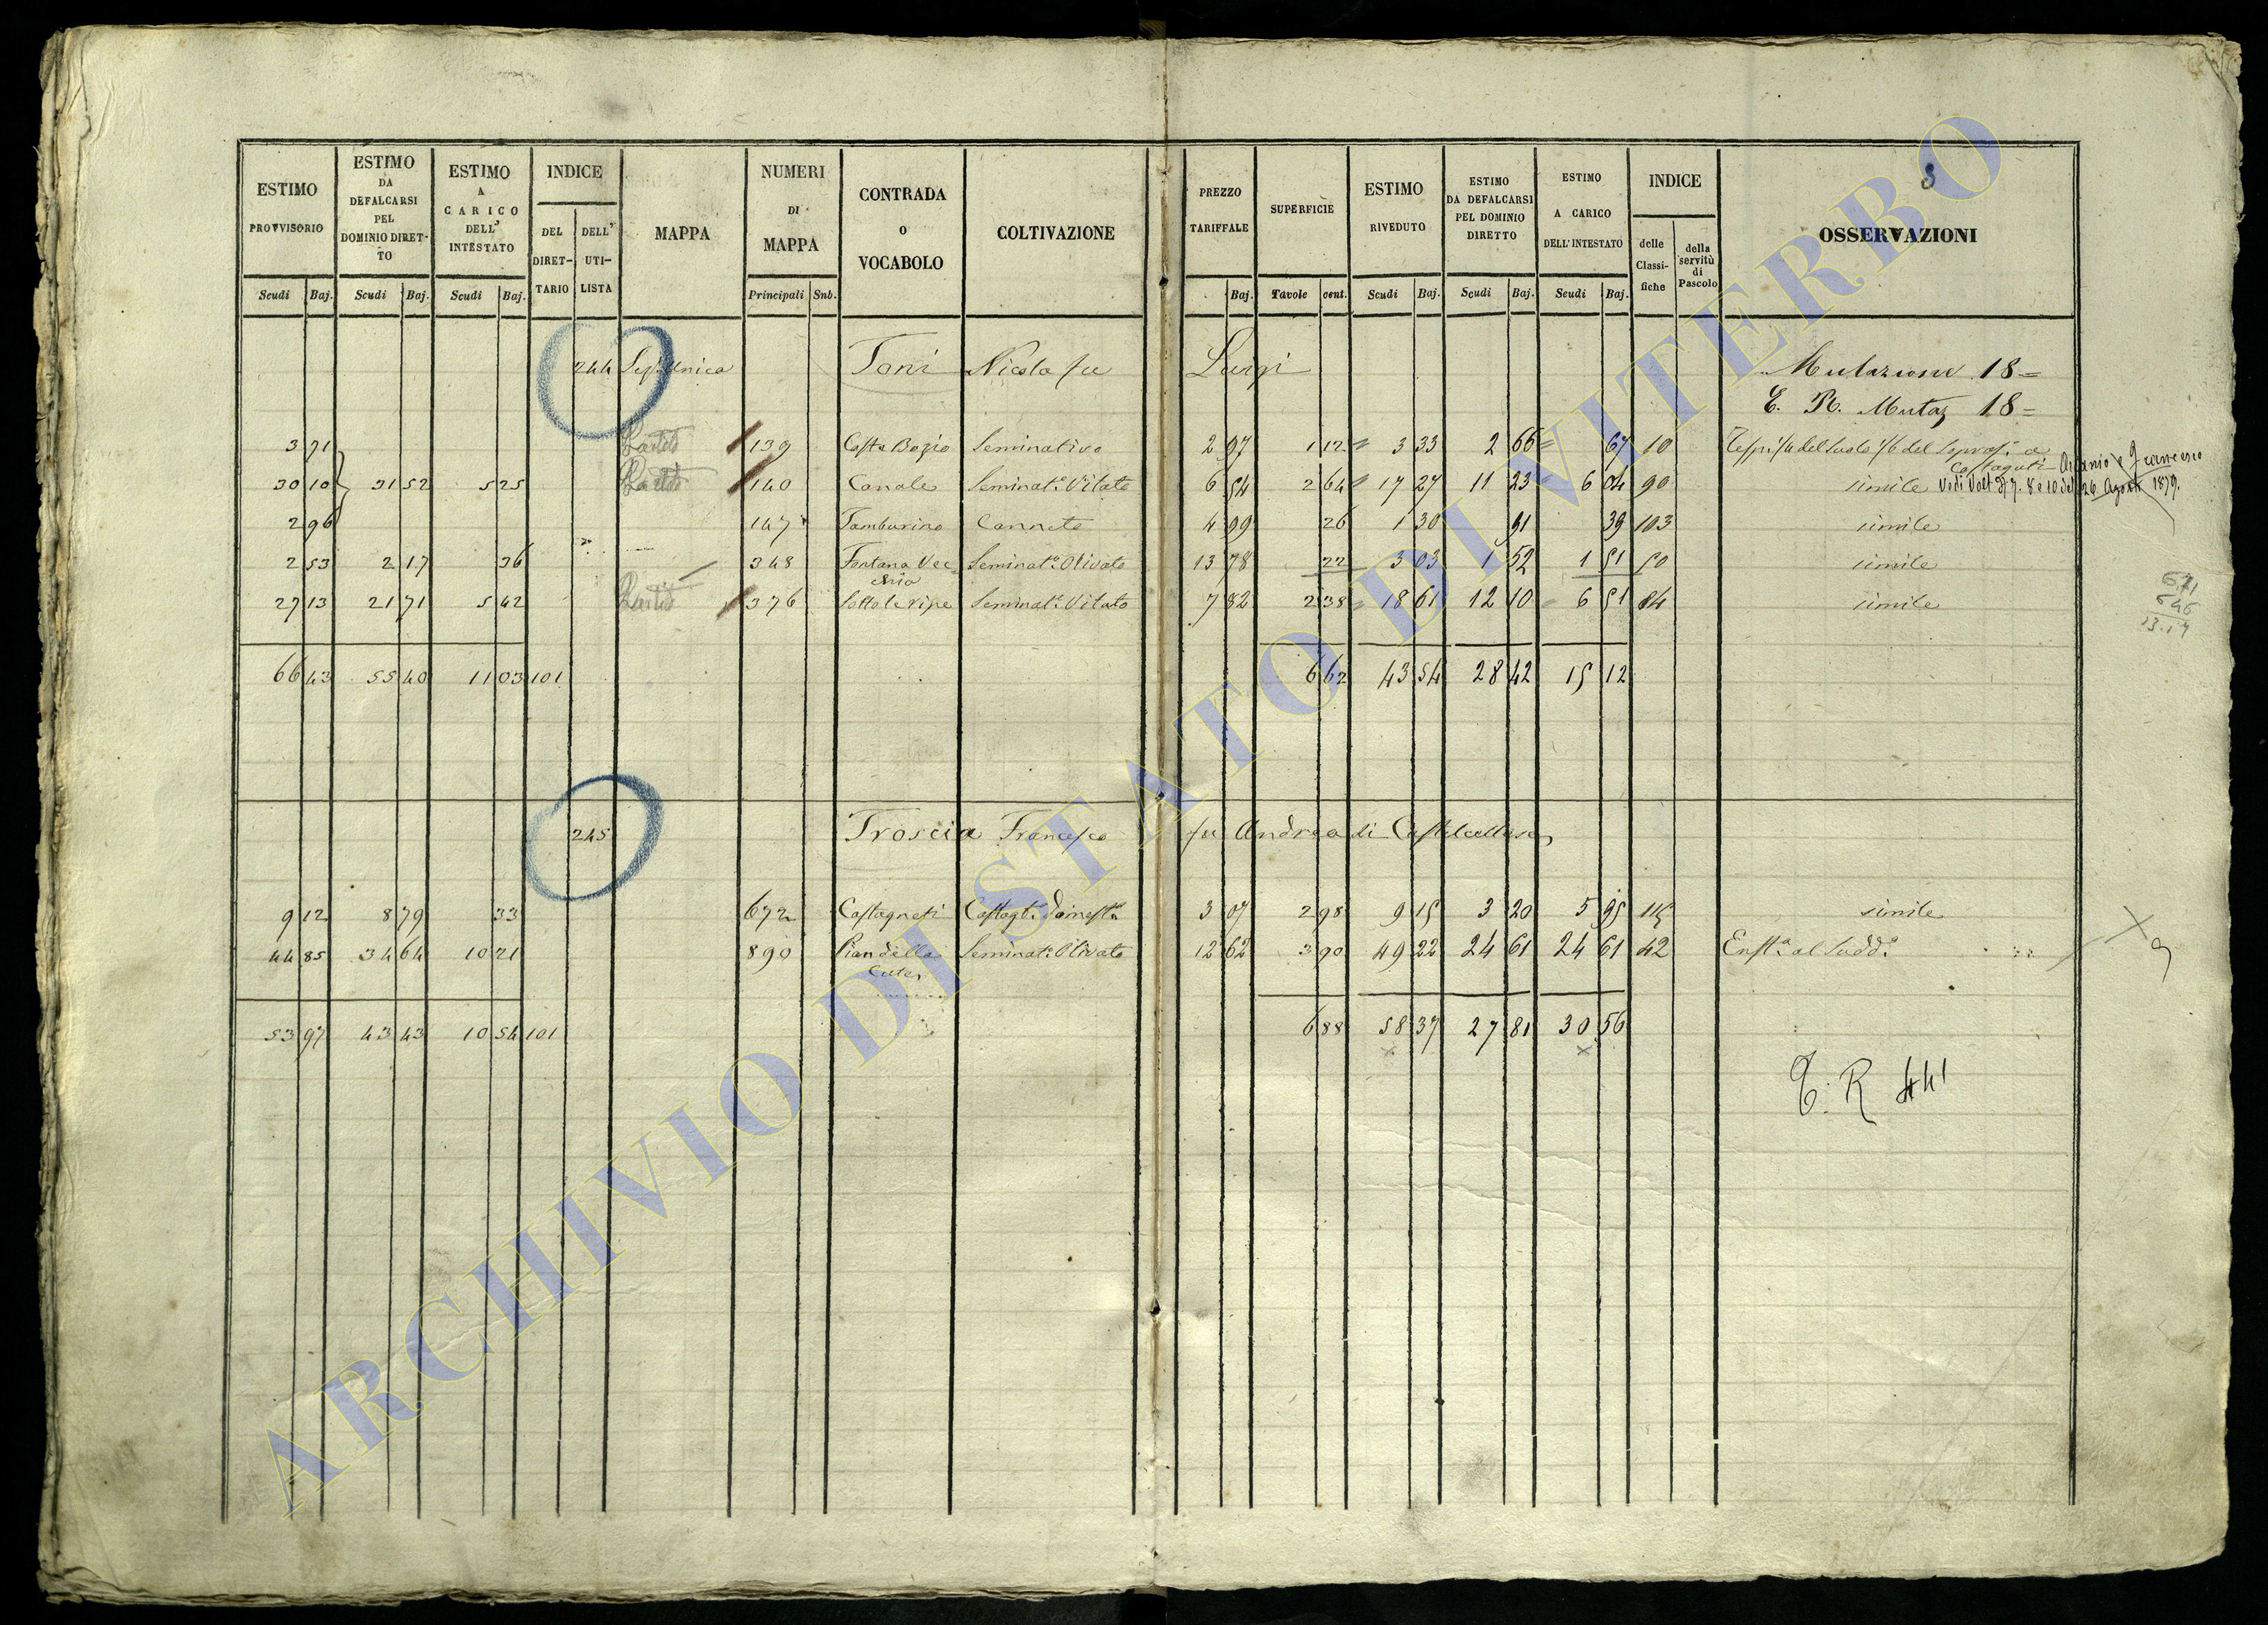 ESTIMO PROVVISORIO
ESTIMO DA DEFALCARSI PEL DOMINIO DIRETTO
ESTIMO A CARICO DELL' INTESTATO
INDICE
DEL DIRETTARIO
DELL' UTILISTA
MAPPA
NUMERI DI MAPPA
CONTRADA O VOCABOLO
COLTIVAZIONE
PREZZO TARIFFALE
SUPERFICIE
ESTIMO RIVEDUTO
ESTIMO DA DEFALCARSI PEL DOMINIO DIRETTO
ESTIMO A CARICO DELL'INTESTATO
INDICE
delle Classifiche
della servitù di Pascolo
3
OSSERVAZIONI
Scudi Baj. Scudi Baj. Scudi Baj. Principali Snb. Baj. Tavole cent. Scudi Baj. Scudi Baj. Scudi Baj.
244 Unica Toni Nicola fu Luigi Mutazione 18=
E. R. Mutaz 18=
3 71 139 Costa Seminativo 2 97 1 12 3 33 2 66 67 10
30 10 31 52 5 25 140 Canale Seminat.o Vitato 6 54 2 64 17 27 11 23 6 04 90 simile Vedi Volt. 8 e 10 del 26 Agosto 1879.
2 96 147 Tamburino Canneto 4 99 26 1 30 91 39 103 simile
2 53 2 17 36 348 Fontana Vecchia Seminat.o Olivato 13 78 22 3 03 1 52 1 51 50 simile
27 13 21 71 5 42 376 Sottoleripe Seminat.o Vitato 7 82 2 38 18 61 12 10 6 51 84 simile
671
646
13.17
66 43 55 40 11 03 101 6 62 43 54 28 42 15 12
245 Troscia Francesco fu Andrea di Castelcellese
9 12 8 79 33 672 Castagneti Castagt. domest.o 3 07 2 98 9 15 3 20 5 95 115 simile
44 85 34 64 10 21 890 Pian della Seminat.o Olivato 12 62 3 90 49 22 24 61 24 61 42 Enft.a al Sudd.o
53 97 43 43 10 54 101 6 88 58 37 27 81 30 56
E. R 441
ARCHIVIO DI STATO DI VITERBO